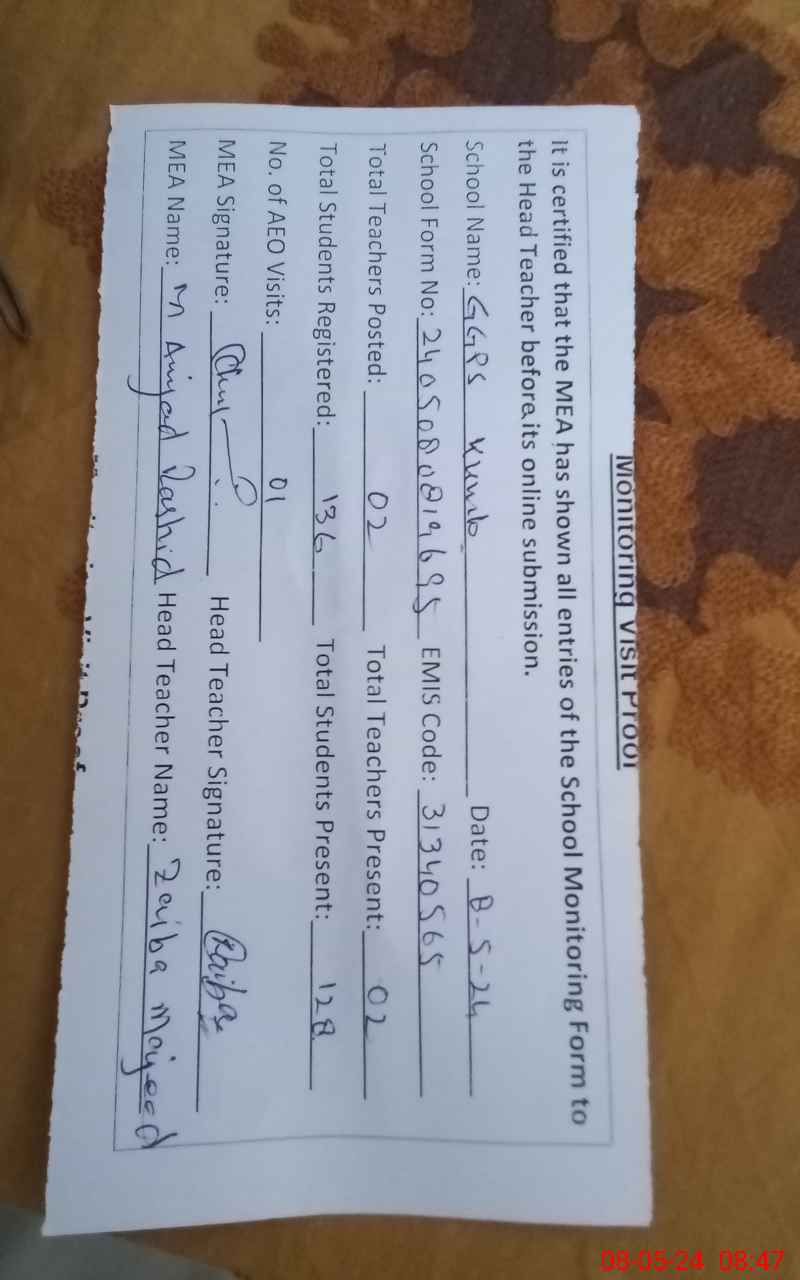 Monitoring Visit Proof
It is certified that the MEA has shown all entries of the School Monitoring Form to
the Head Teacher before its online submission.
School Name: GGPS Kumb Date: 8-5-24
School Form No: 2405080819695 EMIS Code: 31340565
Total Teachers Posted: 02 Total Teachers Present: 02
Total Students Registered: 136 Total Students Present: 128
No. of AEO Visits: 01
MEA Signature: Head Teacher Signature: Zaiba
MEA Name: M Amjad Rashid Head Teacher Name: Zaiba Majeed
08-05-24 08:47